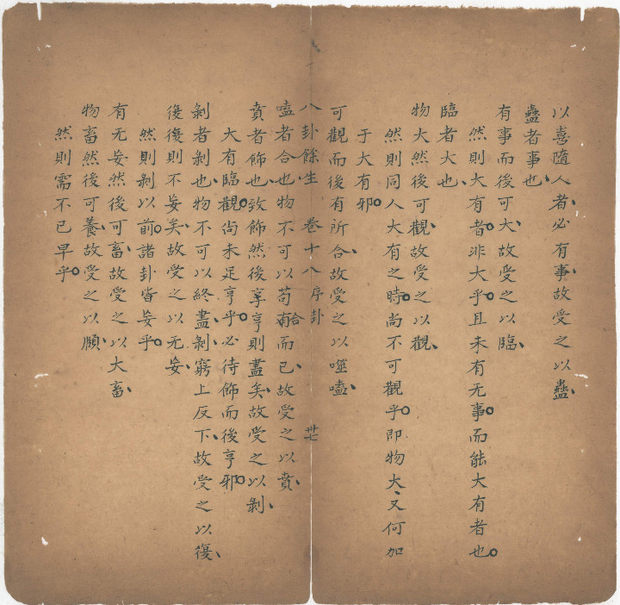 以喜隨人者、必有事、故受之以蠱、
蠱者事也、
有事而後可大、故受之以臨、
然則大有者。非大乎。且未有无事。而能大有者也。
臨者大也
物大然後可觀、故受之以觀、
然則同人大有之時。尚不可觀乎。即物大、又何加
于大有邪。
可觀而後有所合、故受之以噬嗑、
八卦餘生 卷十八 序卦 卅七
嗑者合也、物不可以苟合而已、故受之以賁、
賁者飾也、致飾然後享、亨則盡矣、故受之以剝、
大有臨觀。尚未足亨乎。必待飾而後亨邪。
剝者剝也、物不可以終盡剝、窮上反下、故受之以復、
復復則不妄矣、故受之以无妄、
然則剝以前。諸卦皆妄乎。
有无妄然後可畜、故受之以大畜、
物畜然後可養、故受之以順、
然則需不已早乎。